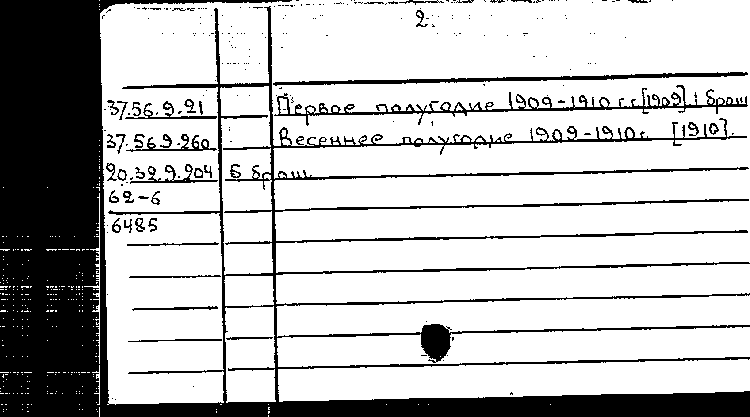 2.
37.56.9.21 Первое полугодие 1909-1910 г.г. [1909] 1 брош
37.56.9.260 Весеннее полугодие 1909-1910г. [1910].
20.32.9.204 Б брош.
62-6
6485